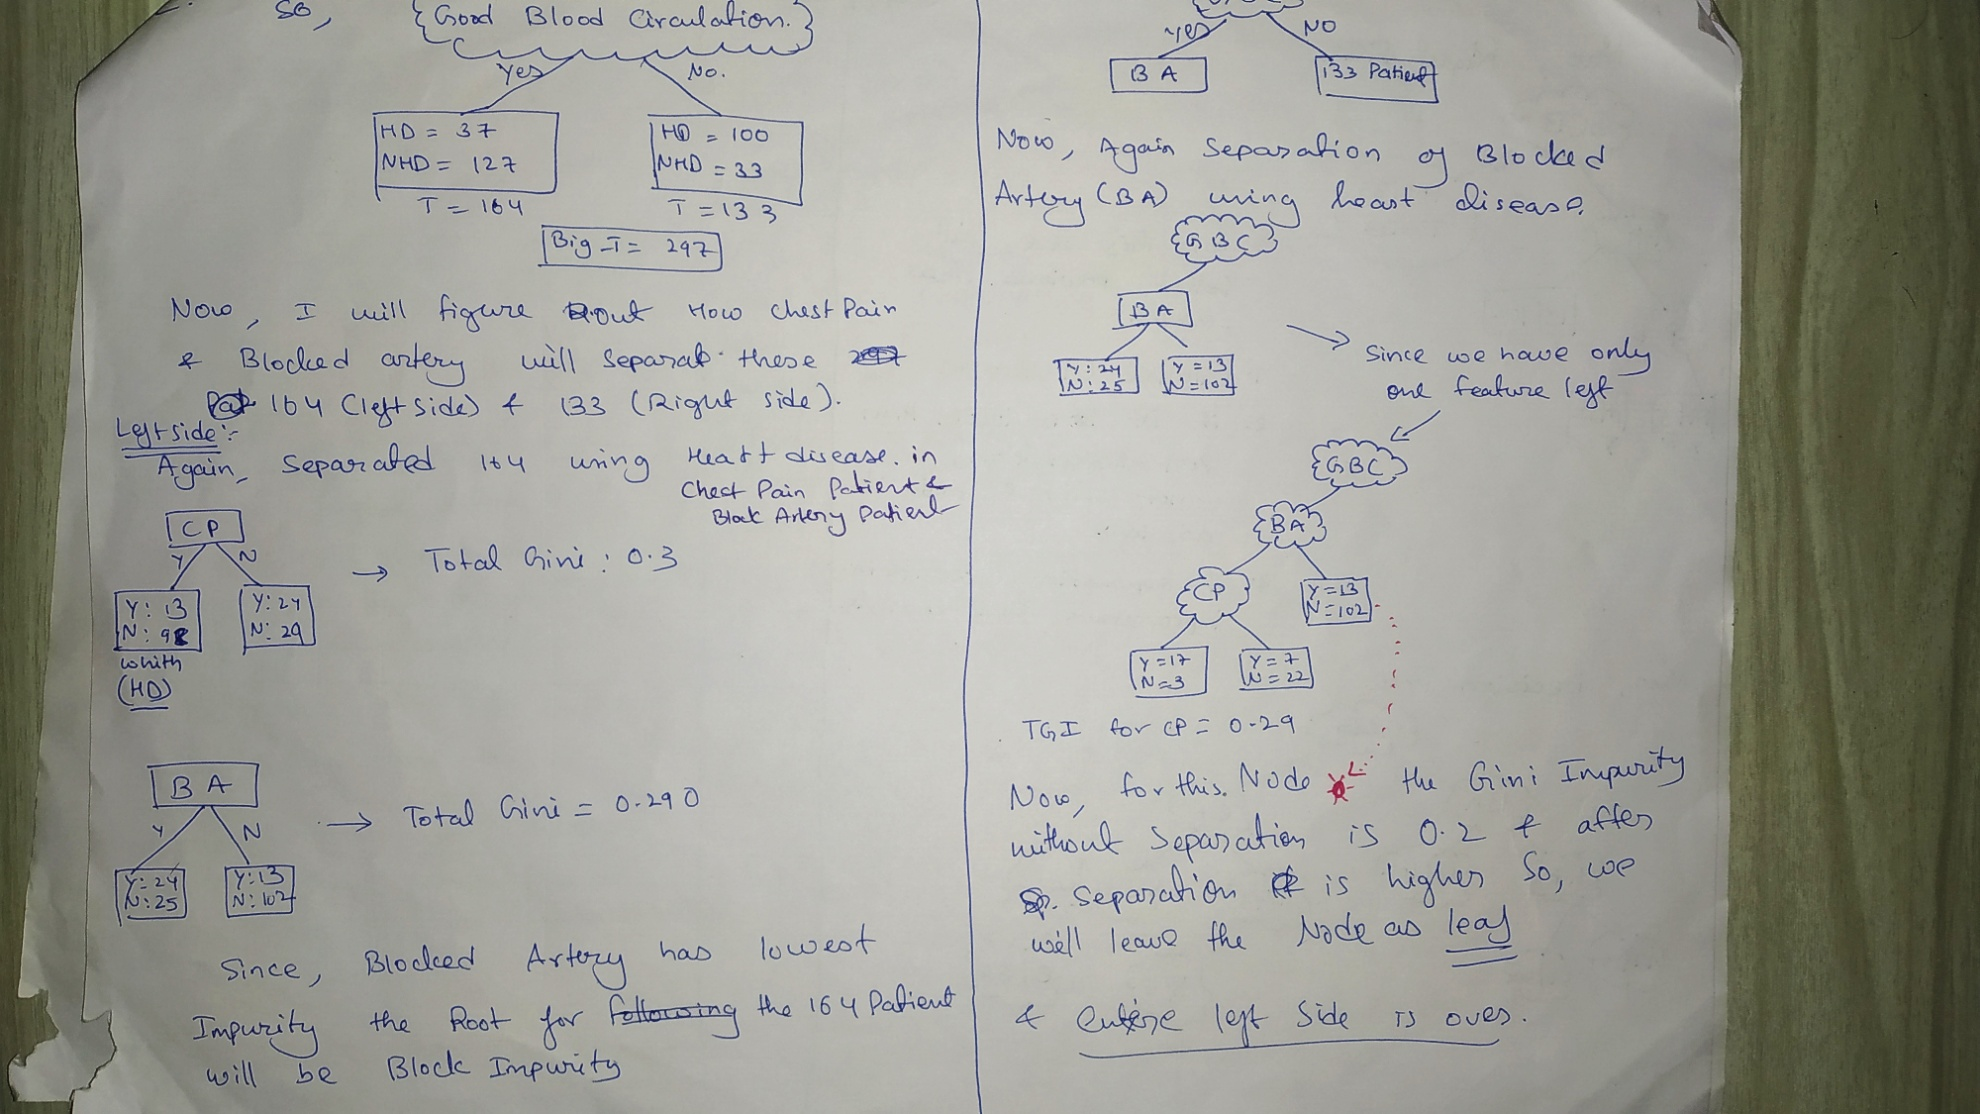 So, Good Blood Circulation.
Yes No.
HD = 37
NHD = 127
T = 164
HD = 100
NHD = 33
T = 133
Big T = 297
Now, I will figure out How chest Pain
& Blocked artery will separat these
164 (left side) & 133 (Right side).
Left side :-
Again, Separated 164 using Heart disease. in
Chest Pain Patient &
Block Artery Patient
CP
Y N
Y: 13
N: 98
Y: 24
N: 29
whith
(HD)
→ Total Gini : 0.3
BA
Y N
Y: 24
N: 25
Y: 13
N: 102
→ Total Gini = 0.290
Since, Blocked Artery has lowest
Impurity the Root for following the 164 Patient
will be Block Impurity
Yes NO
BA
133 Patient
Now, Again Separation of Blocked
Artery (BA) using heart disease.
GBC
BA
Y: 24
N: 25
Y = 13
N = 102
→ Since we have only
one feature left
GBC
BA
CP
Y = 13
N = 102
Y = 17
N = 3
Y = 7
N = 22
TGI for CP = 0.29
Now, for this. Node the Gini Impurity
without Separation is 0.2 & after
Separation is higher So, we
will leave the Node as leaf
& entire left side is over.